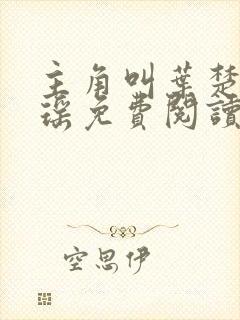 主角叫葉楚
瑤免費閱讀
空思伊